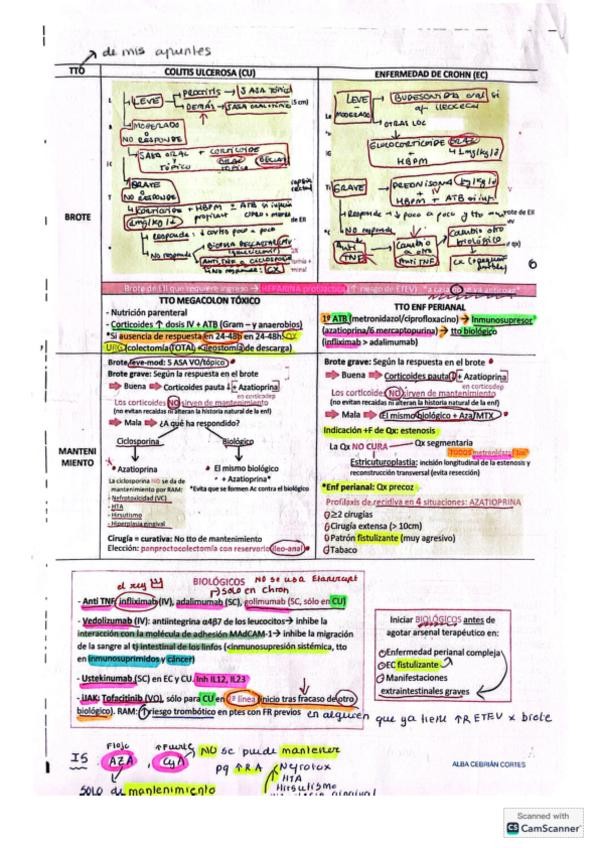 de mis apuntes
TTO
COLITIS ULCEROSA (CU)
ENFERMEDAD DE CROHN (EC)
BROTE
LEVE
PROCTITIS → 5 ASA TÓPICO
DETRÁS → 5 ASA ORAL + TÓPICO
MODERADO
O
NO RESPONDE
5 ASA ORAL Y TÓPICO + CORTICOIDE
GRAVE
O
NO RESPONDE
Responde:
No responde
NO RESPONDE: CX
LEVE-MODERADO
BUDESONIDA oral si
OTRAS LOC
GLUCOCORTICOIDE ORAL
+
HBPM
1 mg/kg/d
GRAVE
PREDNISONA 1 mg/kg/d
+ IV
HBPM + ATB si
Responde → ↓ poco a poco y tto
NO responde
Anti TNF
Cambio a otro Anti TNF
Cambio otro biológico
6
Brote de EII que requiere ingreso → HEPARINA profiláctica (↑ riesgo de ETEV)
TTO MEGACOLON TÓXICO
- Nutrición parenteral
- Corticoides ↑ dosis IV + ATB (Gram – y anaerobios)
*Si ausencia de respuesta en 24-48h en 24-48h: QX
URG (colectomía TOTAL + ileostomía de descarga)
TTO ENF PERIANAL
1º ATB (metronidazol/ciprofloxacino) → Inmunosupresor
(azatioprina/6 mercaptopurina) → tto biológico
(infliximab > adalimumab)
MANTENI
MIENTO
Brote leve-mod: 5 ASA VO/tópico
Brote grave: Según la respuesta en el brote
Buena → Corticoides pauta ↓ + Azatioprina
en corticodep
Los corticoides NO sirven de mantenimiento
(no evitan recaidas ni alteran la historia natural de la enf)
Mala → ¿A qué ha respondido?
Ciclosporina
Biológico
Azatioprina
El mismo biológico
+ Azatioprina*
La ciclosporina NO se da de
mantenimiento por RAM:
*Evita que se formen Ac contra el biológico
- Nefrotoxicidad (VC)
- HTA
- Hirsutismo
- Hiperplasia gingival
Cirugía = curativa: No tto de mantenimiento
Elección: panproctocolectomía con reservorio ileo-anal
Brote grave: Según la respuesta en el brote
Buena → Corticoides pauta ↓ + Azatioprina
en corticodep
Los corticoides NO sirven de mantenimiento
(no evitan recaidas ni alteran la historia natural de la enf)
Mala → El mismo biológico + Aza/MTX
Indicación +F de Qx: estenosis
La Qx NO CURA → Qx segmentaria
Estricturoplastia: incisión longitudinal de la estenosis y
reconstrucción transversal (evita resección)
*Enf perianal: Qx precoz
Profilaxis de recidiva en 4 situaciones: AZATIOPRINA
≥2 cirugías
Cirugía extensa (> 10cm)
Patrón fistulizante (muy agresivo)
Tabaco
el rey
BIOLÓGICOS
NO se usa Etanercept
sólo en chron
- Anti TNF: infliximab (IV), adalimumab (SC), golimumab (SC, sólo en CU)
- Vedolizumab (IV): antiintegrina α4β7 de los leucocitos → inhibe la
interacción con la molécula de adhesión MAdCAM-1 → inhibe la migración
de la sangre al tj intestinal de los linfos (<inmunosupresión sistémica, tto
en inmunosuprimidos y cáncer)
- Ustekinumab (SC) en EC y CU. Inh IL12, IL23
- iJAK: Tofacitinib (VO), sólo para CU en 2ª línea (inicio tras fracaso de otro
biológico). RAM: ↑riesgo trombótico en ptes con FR previos
en alguien que ya tiene ↑R ETEV x brote
Iniciar BIOLÓGICOS antes de
agotar arsenal terapéutico en:
Enfermedad perianal compleja
EC fistulizante
Manifestaciones
extraintestinales graves
IS
Flojo
AZA
↑Fuerte
CyA
NO se puede mantener
pq ↑RA
Nefrotox
HTA
Hirsutismo
SOLO de mantenimiento
ALBA CEBRIÁN CORTES
Scanned with
CS CamScanner